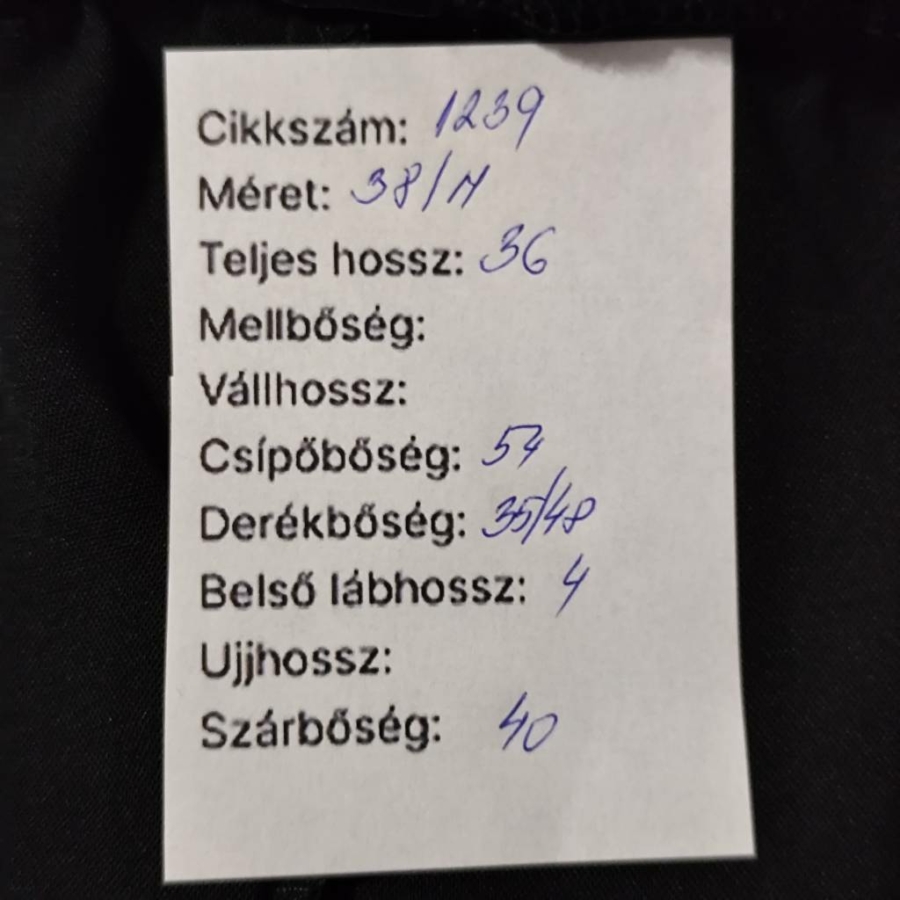 Cikkszám: 1239
Méret: 38/M
Teljes hossz: 36
Mellbőség:
Vállhossz:
Csípőbőség: 54
Derékbőség: 35/48
Belső lábhossz: 4
Ujjhossz:
Szárbőség: 40